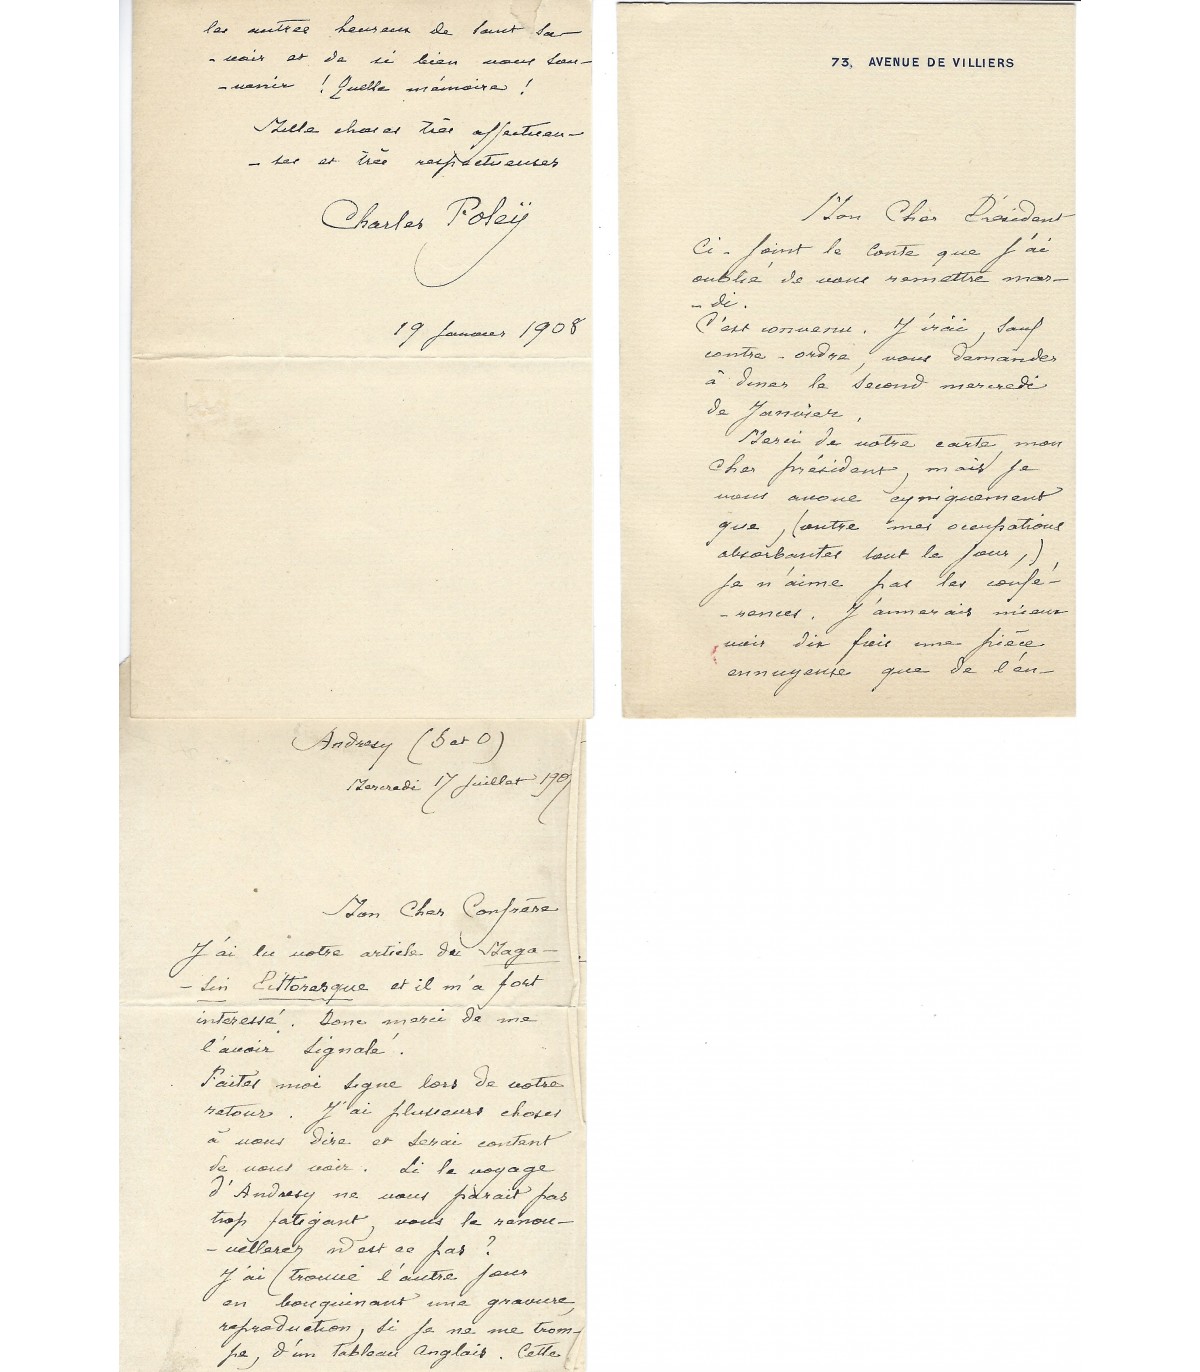 les autres heureux de tant sa-
-voir et de si bien vous sou-
-venir ! Quelle mémoire !
Mille choses très affectueu-
-ses et très respectueuses
Charles Foleÿ
19 Janvier 1908
73, AVENUE DE VILLIERS
Mon Cher Président
Ci-joint le conte que j'ai
oublié de vous remettre mar-
-di.
C'est convenu. J'irai, sauf
contre-ordre, vous demander
à diner le second mercredi
de Janvier.
Merci de votre carte, mon
cher président, mais je
vous avoue cyniquement
que, (outre mes occupations
absorbantes tout le jour,)
je n'aime pas les confé-
-rences. J'aimerais mieux
voir dix fois une pièce
ennuyeuse que de l'en-
Andresy (S et O)
Mercredi 17 juillet 1907
Mon Cher Confrère
J'ai lu votre article du Maga-
-sin Pittoresque et il m'a fort
interessé. Donc merci de me
l'avoir signalé.
Faites moi signe lors de votre
retour. J'ai plusieurs choses
à vous dire et serai content
de vous voir. Si le voyage
d'Andresy ne vous parait pas
trop fatigant, vous le renou-
-vellerez n'est ce pas ?
J'ai trouvé l'autre jour
en bouquinant une gravure,
reproduction, si je ne me trom-
pe, d'un tableau Anglais. Cette